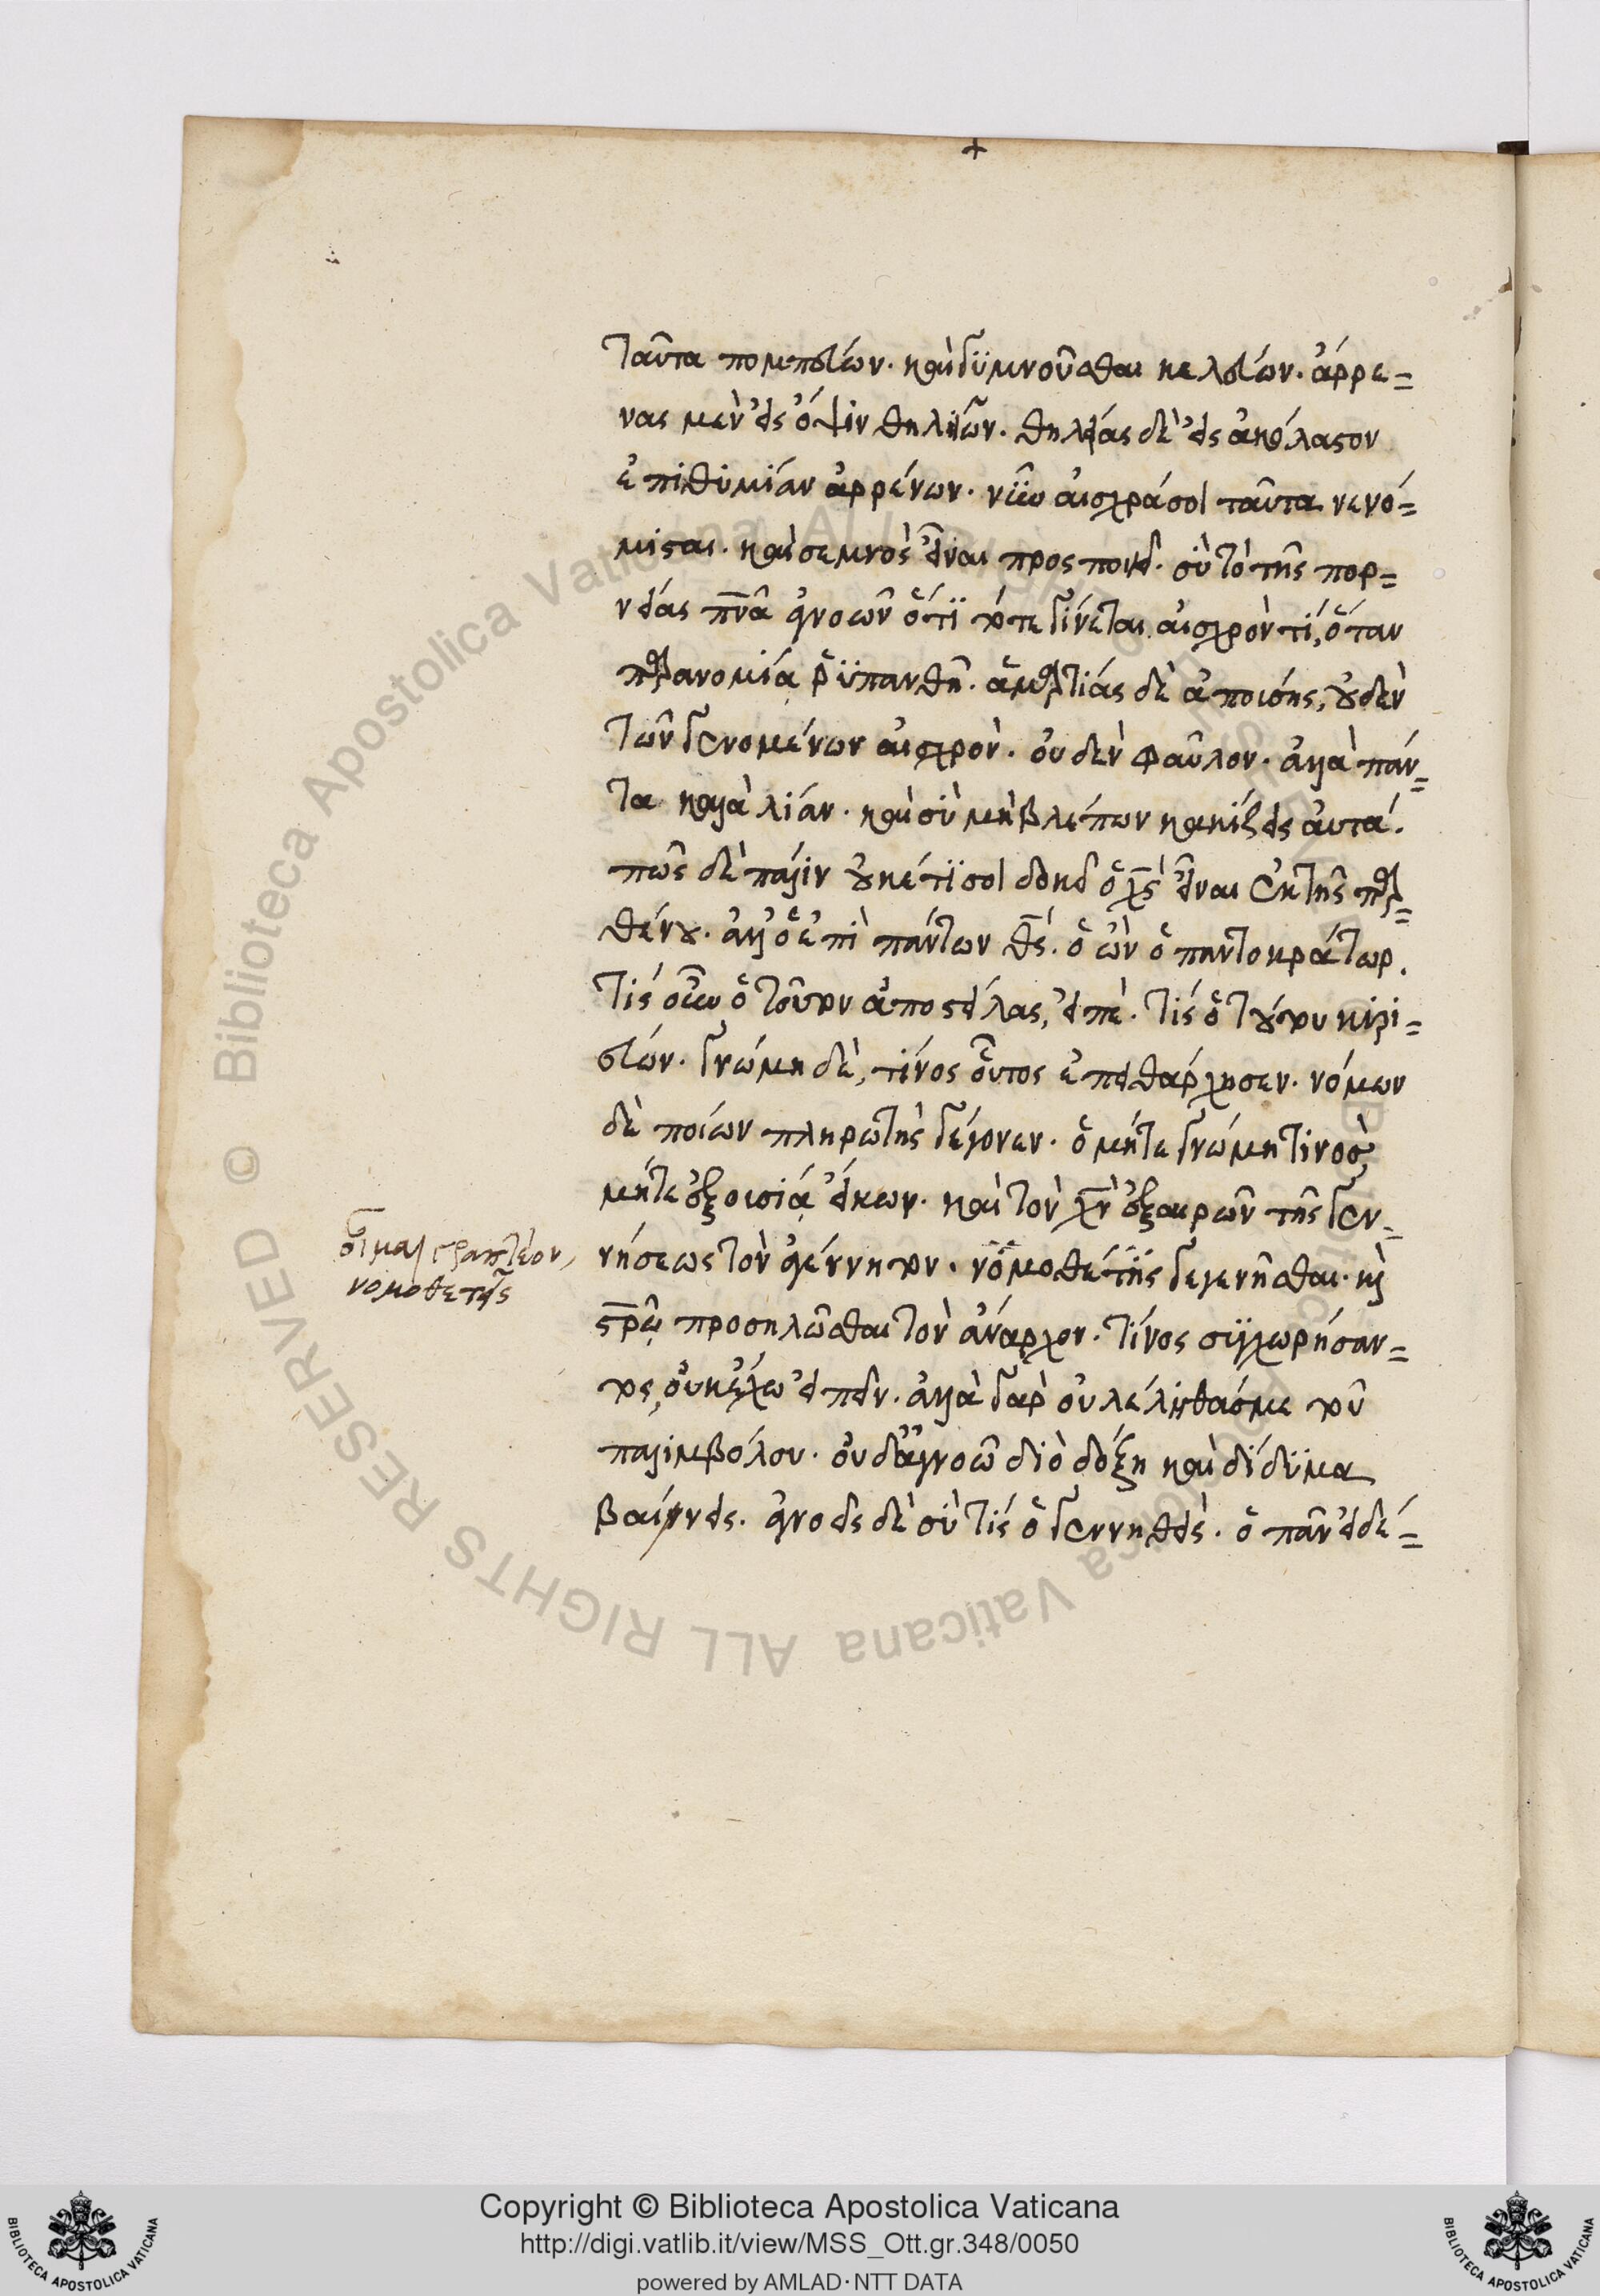 ταῦτα πομπεύων. καὶ γυμνοῦσθαι κελεύων. ἄρρε=
νας μὲν εἰς ὄψιν θηλειῶν. θηλείας δὲ εἰς ἀκόλαστον
ἐπιθυμίαν ἀρρένων. νῦν αἰσχρά σοι ταῦτα νενό=
μισται. καὶ σεμνὸς εἶναι προσποιεῖ. σὺ τὸ τῆς πορ=
νείας πν̅α ἀγνοῶν ὅτι τότε γίνεται αἰσχρόν τι, ὅταν
παρανομίᾳ ῥυπανθῇ. ἁμαρτίας δὲ ἀποίσης, οὐδὲν
τῶν γενομένων αἰσχρὸν. οὐδὲν φαῦλον. ἀλλὰ πάν=
τα καλὰ λίαν. καὶ σὺ μὴ βλέπων κακίζεις αὐτά.
πῶς δὲ πάλιν οὐκέτι σοι δοκεῖ ὁ χ̅ς εἶναι ἐκ τῆς παρ=
θένου. ἀλλ' ὁ ἐπὶ πάντων θ̅ς. ὁ ὢν ὁ παντοκράτωρ.
τίς οὖν ὁ τοῦτον ἀποστείλας, εἰπέ. τίς ὁ τούτου κυρι=
εύων. γνώμη δὲ, τίνος οὗτος ἐπειθάρχησεν. νόμων
δὲ ποίων πληρωτὴς γέγονεν. ὁ μήτε γνώμη τινὸς
μήτε ἐξουσίᾳ εἴκων. καὶ τὸν χ̅ν ἐξαιρῶν τῆς γεν=
νήσεως τὸν ἀγέννητον. νομοθέτης γεγενῆσθαι. κ̀
στ̅ρῷ προσηλῶσθαι τὸν ἄναρχον. τίνος συγχωρήσαν=
τος, οὐκ ἔχω εἰπεῖν. ἀλλὰ γὰρ οὐ λέληθας με τοῦ
παλιμβόλου. οὐδ' ἀγνοῶ διὸ δόξη καὶ δίδυμα
βαίνεις. ἀγνοεῖς δὲ σὺ τίς ὁ γεννηθείς. ὁ πᾶν εἰδέ=
οἶμαι γραπτέον,
νομοθετῆς
Copyright © Biblioteca Apostolica Vaticana
http://digi.vatlib.it/view/MSS_Ott.gr.348/0050
powered by AMLAD·NTT DATA
BIBLIOTECA APOSTOLICA VATICANA
BIBLIOTECA APOSTOLICA VATICANA
© Biblioteca Apostolica Vaticana ALL RIGHTS RESERVED